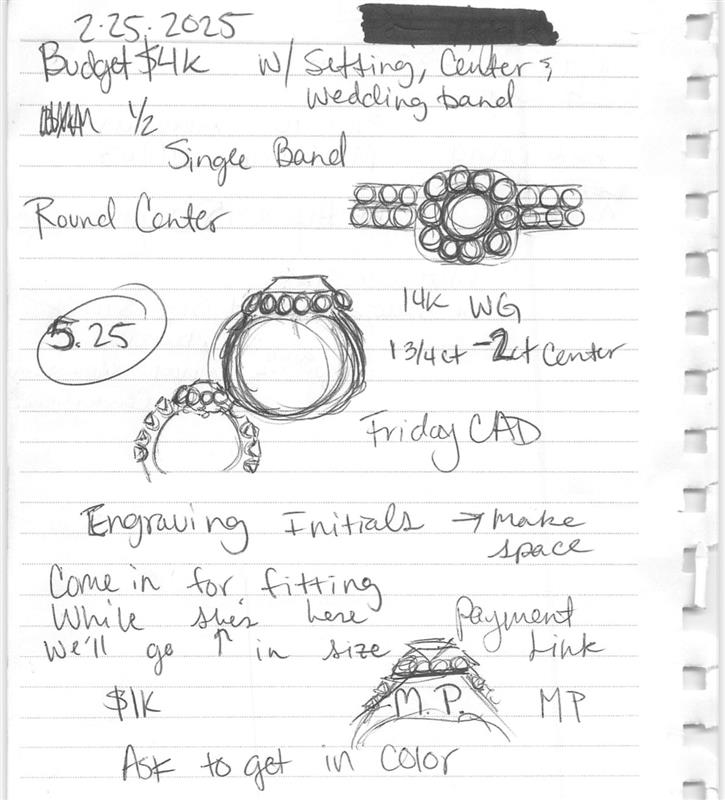 2.25.2025
Budget $4k w/ Setting, Center &
wedding band
1/2
Single Band
Round Center
14k WG
5.25
1 3/4ct - 2ct Center
Friday CAD
Engraving Initials → make
space
Come in for fitting
While she's here
Payment
Link
we'll go ↑ in size
$1k
M.P.
MP
Ask to get in color